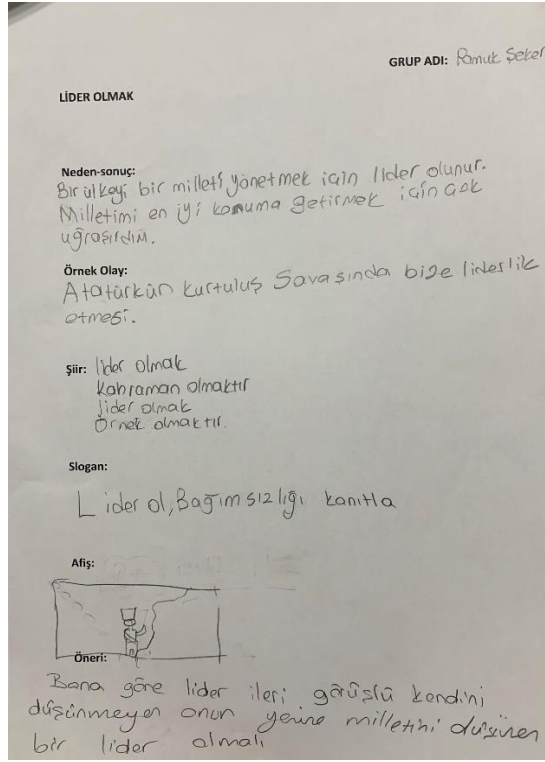 GRUP ADI: Pamuk Şeker
LİDER OLMAK
Neden-sonuç:
Bir ülkeyi bir milleti yönetmek için lider olunur.
Milletimi en iyi konuma getirmek için çok
uğraşırdım.
Örnek Olay:
Atatürkün kurtuluş Savaşında bize liderlik
etmesi.
Şiir: lider olmak
kahraman olmaktır
lider olmak
Örnek olmaktır.
Slogan:
Lider ol, Bağımsızlığı kanıtla
Afiş:
Öneri:
Bana göre lider ileri görüşlü kendini
düşünmeyen onun yerine milletini düşünen
bir lider olmalı